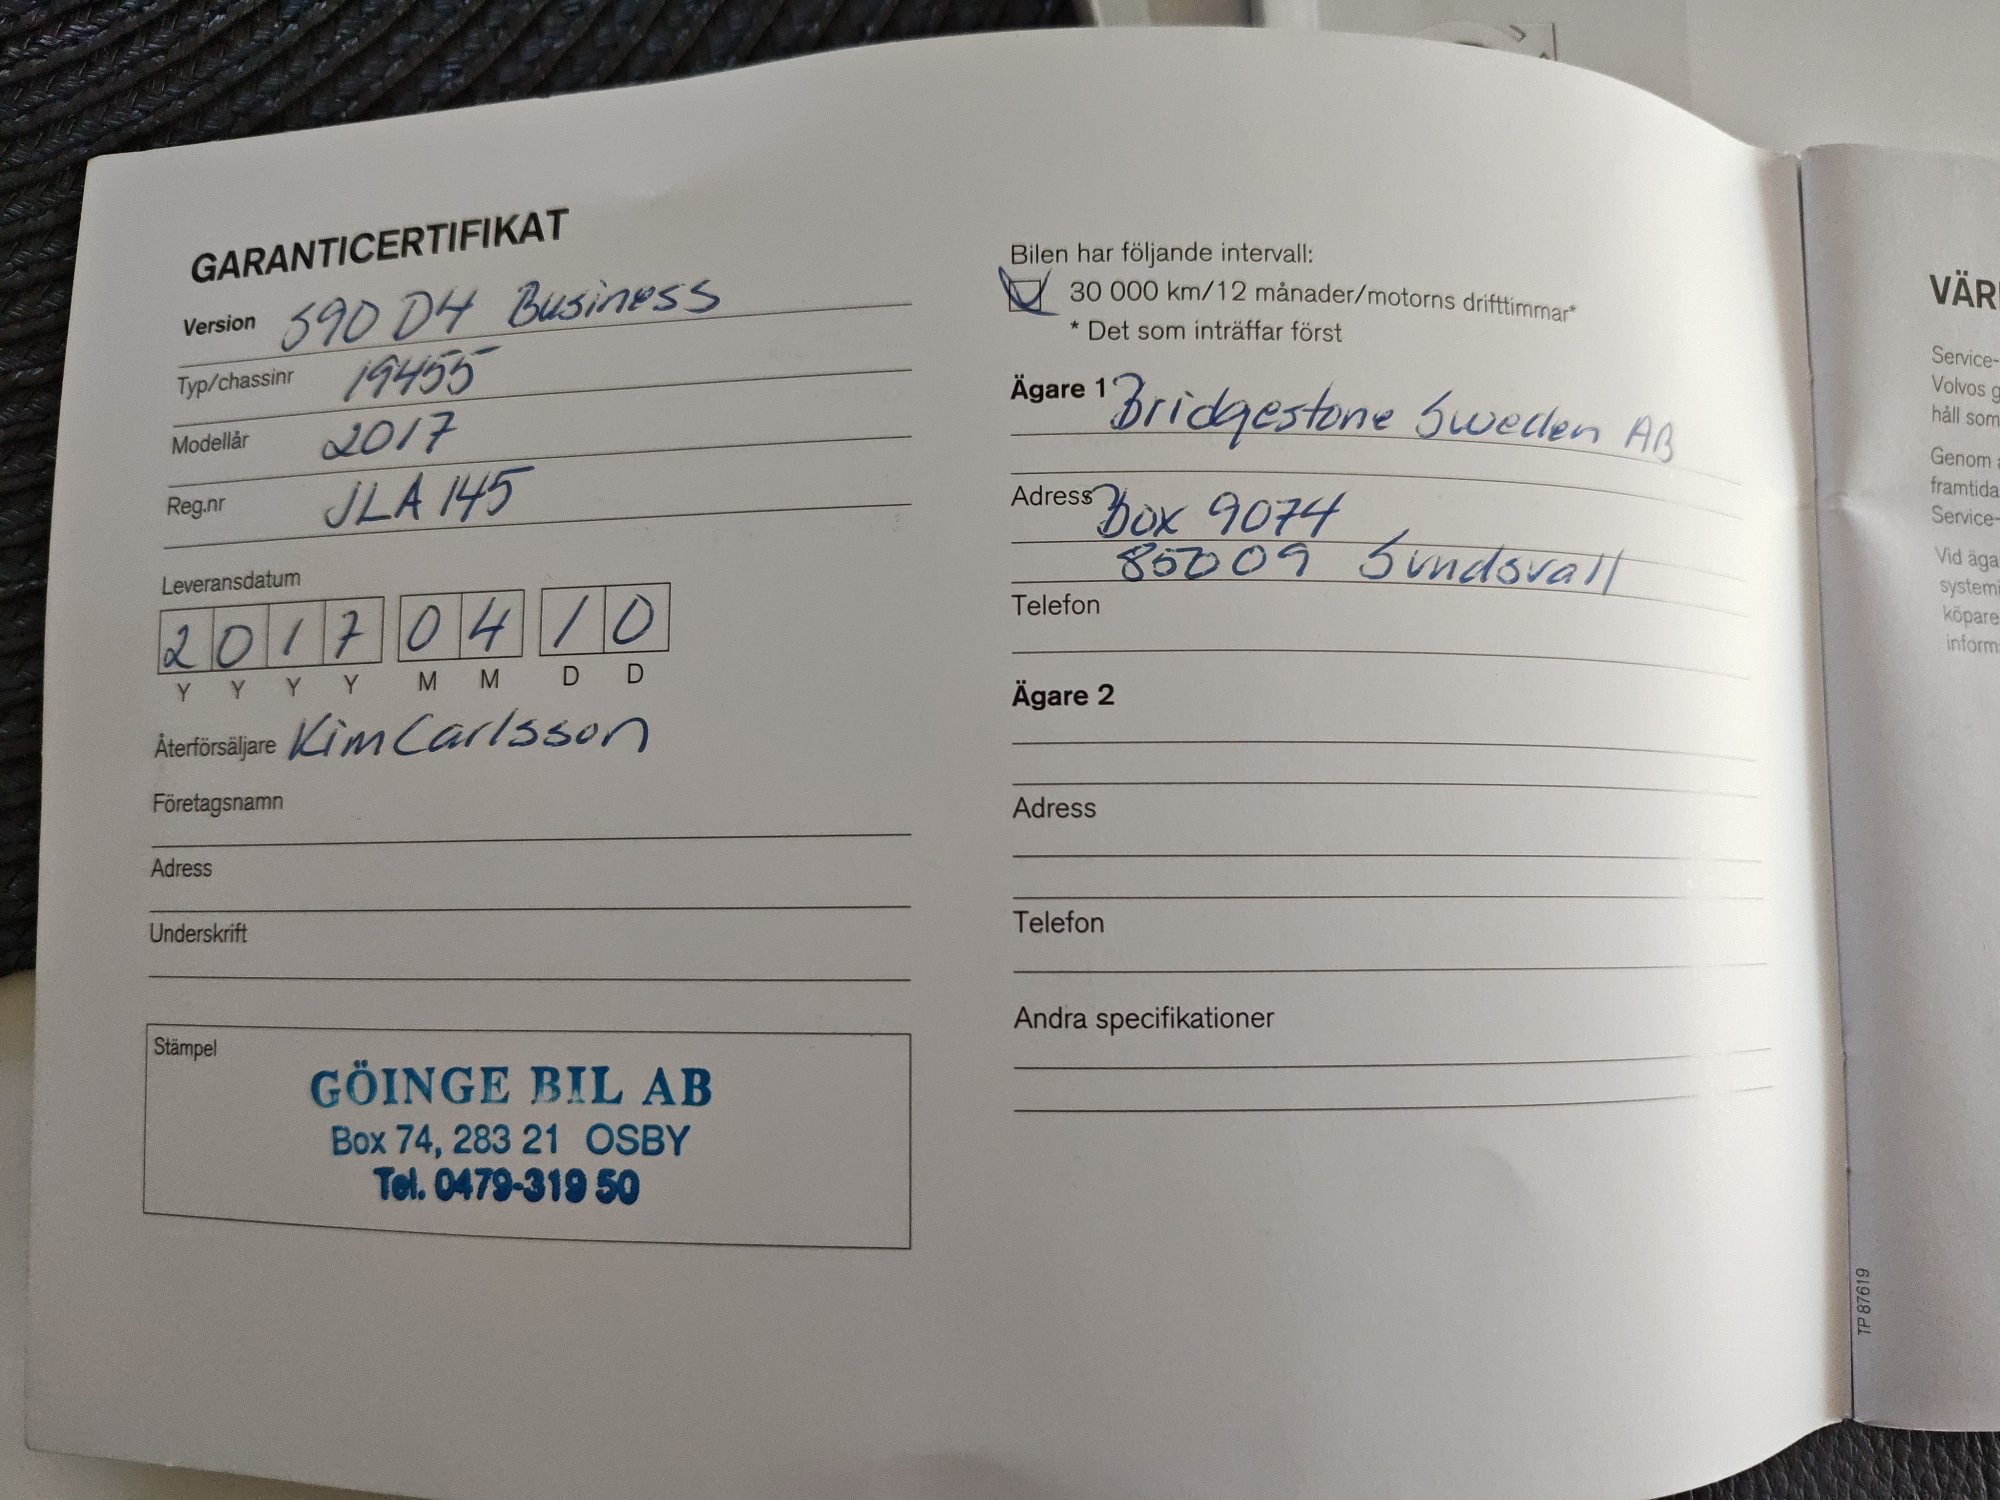 GARANTICERTIFIKAT
Version S90 D4 Business
Typ/chassinr 19455
Modellår 2017
Reg.nr JLA 145
Leveransdatum
2 0 1 7 0 4 1 0
Y Y Y Y M M D D
Återförsäljare Kim Carlsson
Företagsnamn
Adress
Underskrift
Stämpel
GÖINGE BIL AB
Box 74, 283 21 OSBY
Tel. 0479-319 50
Bilen har följande intervall:
30 000 km/12 månader/motorns drifttimmar*
* Det som inträffar först
Ägare 1 Bridgestone Sweden AB
Adress Box 9074
85009 Sundsvall
Telefon
Ägare 2
Adress
Telefon
Andra specifikationer
TP 87619
VÄR
Service-
Volvos g
håll som
Genom a
framtida
Service-
Vid äga
systemi
köpare
inform